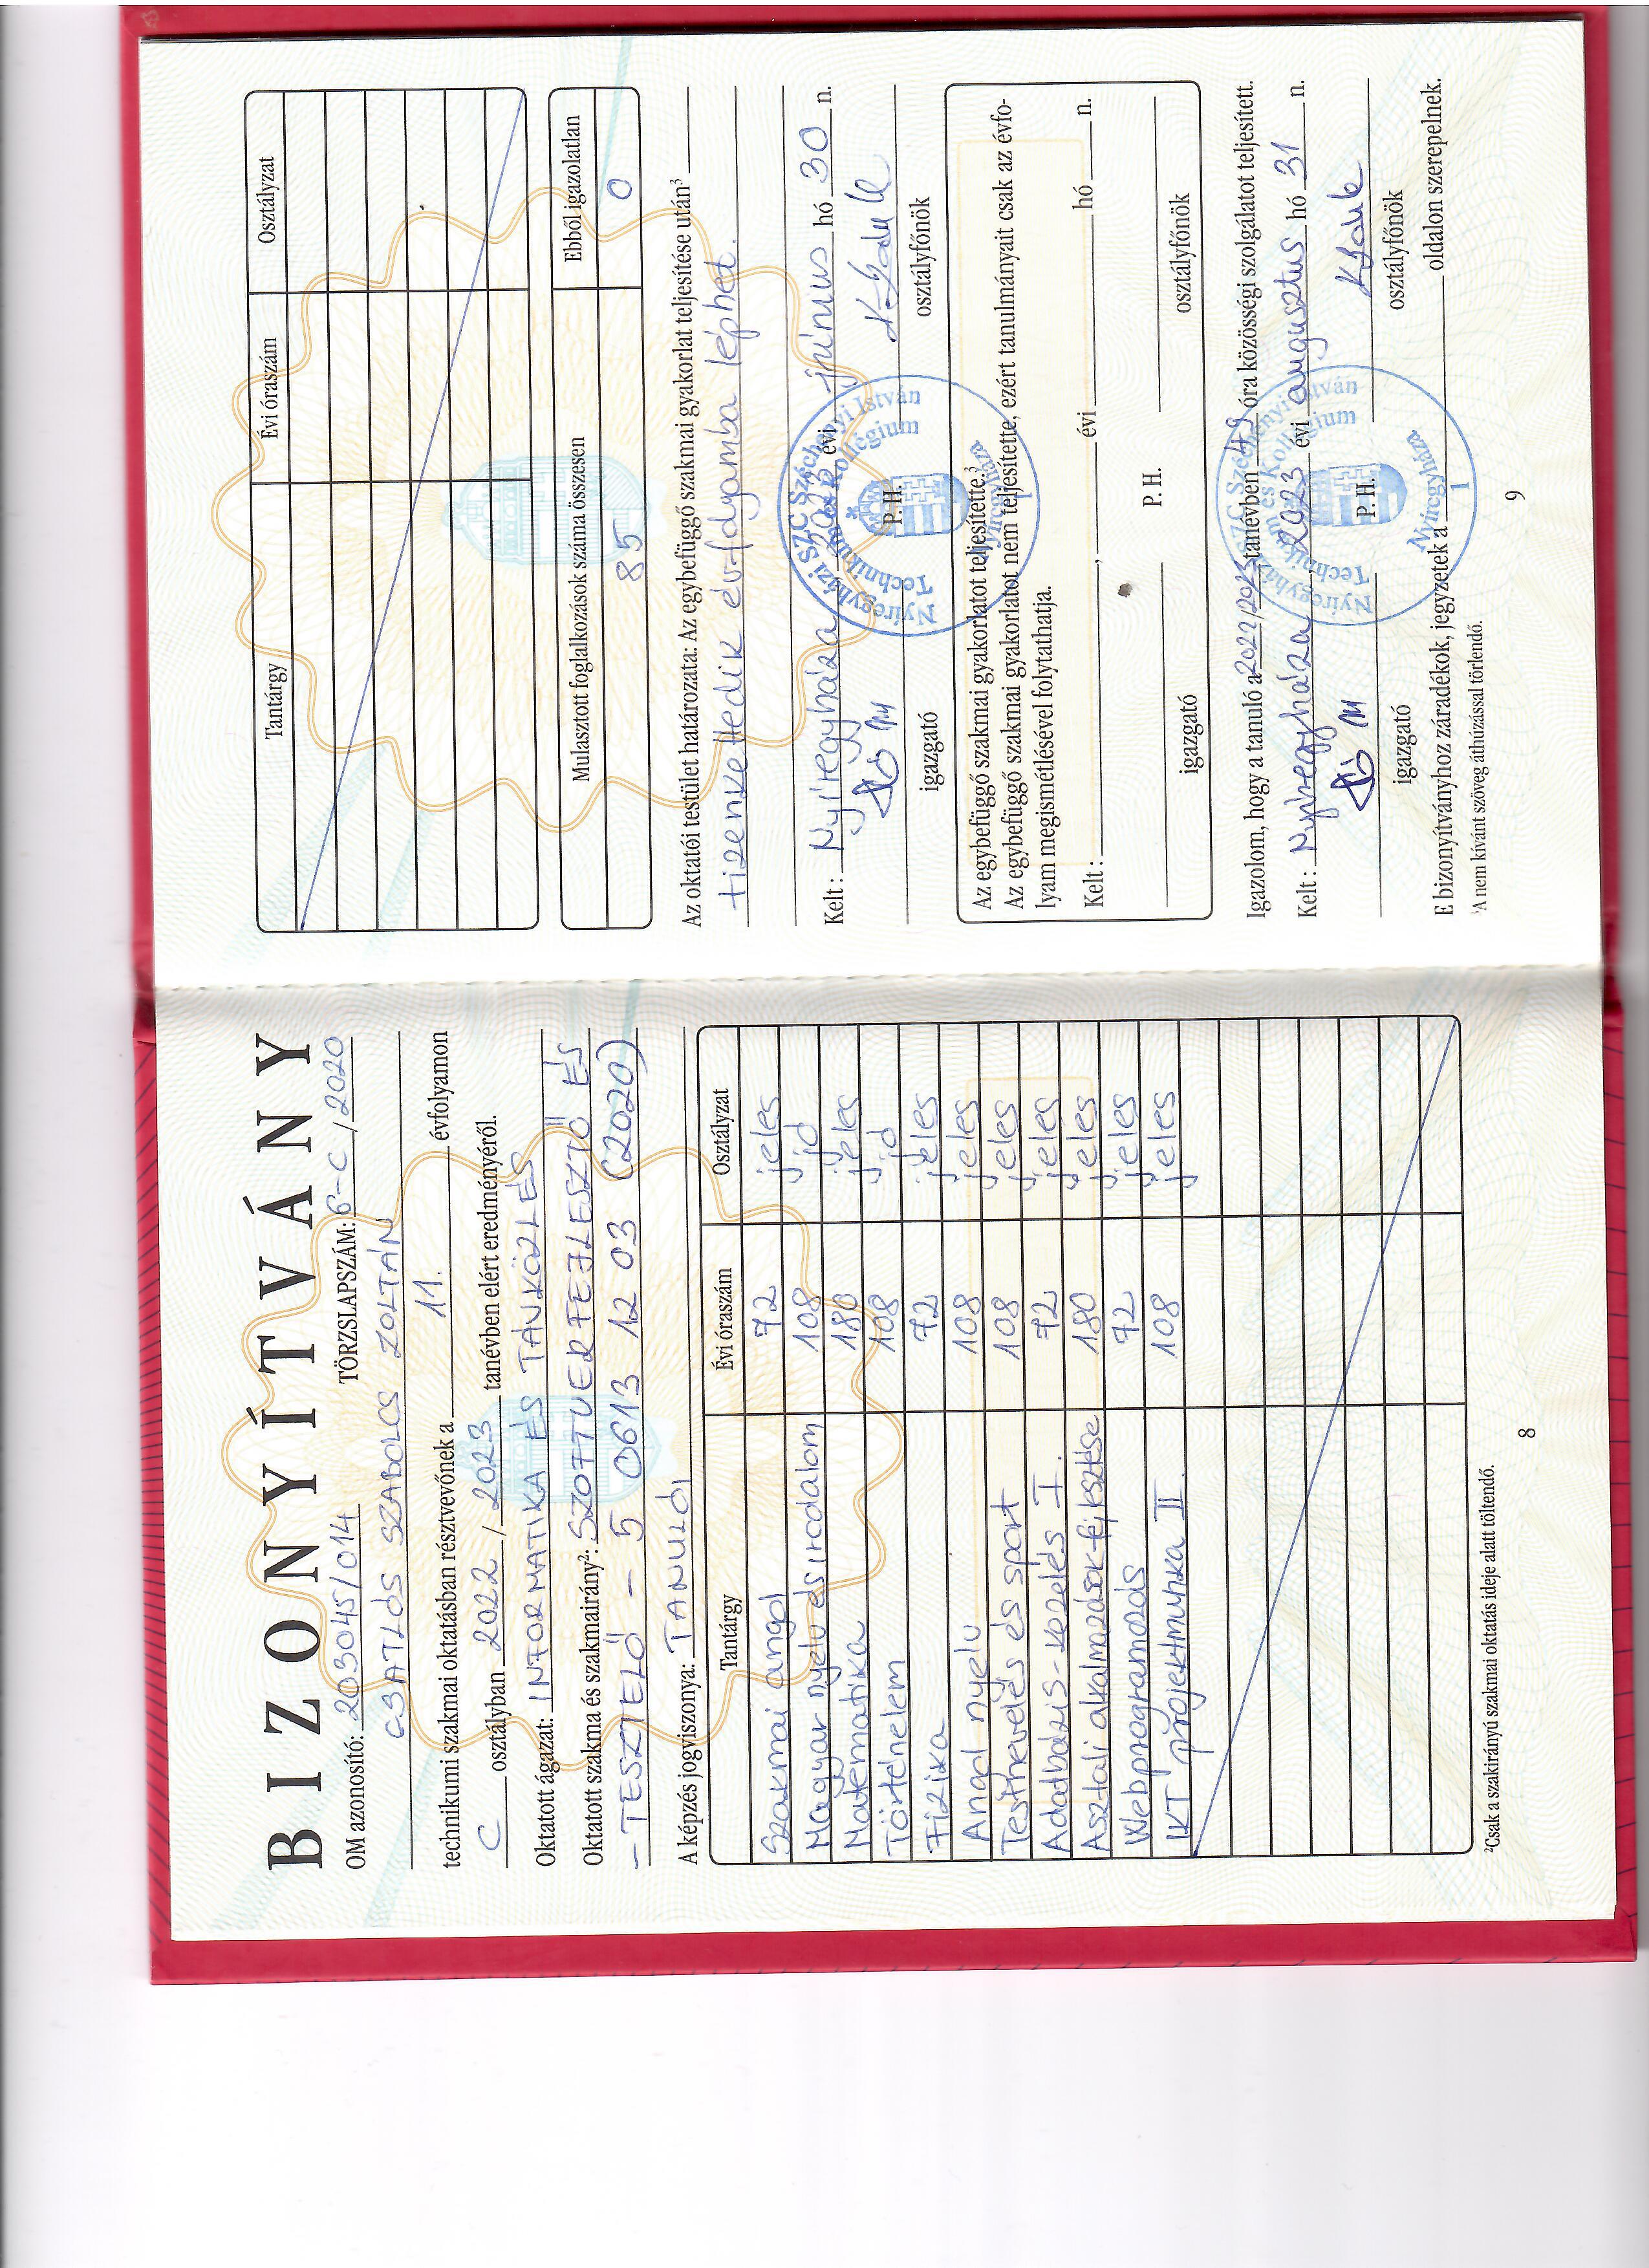 BIZONYÍTVÁNY
OM azonosító: 203045/014 TÖRZSLAPSZÁM: 6-C/2020
CSATLÓS SZABOLCS ZOLTÁN
technikumi szakmai oktatásban résztvevőnek a 11. évfolyamon
C osztályban 2022/2023 tanévben elért eredményéről.
Oktatott ágazat: INFORMATIKA ÉS TÁVKÖZLÉS
Oktatott szakma és szakmairány²: SZOFTVERFEJLESZTŐ ÉS
-TESZTELŐ - 5 0613 12 03 (2020)
A képzés jogviszonya: TANULÓI
Tantárgy Évi óraszám Osztályzat
Szakmai angol 72 jeles
Magyar nyelv és irodalom 108 jó
Matematika 180 jeles
Történelem 108 jó
Fizika 72 jeles
Angol nyelv 108 jeles
Testnevelés és sport 108 jeles
Adatbázis-kezelés I. 72 jeles
Asztali alkalmazások fejlesztése 180 jeles
Webprogramozás 72 jeles
IKT projektmunka II 108 jeles
²Csak a szakirányú szakmai oktatás ideje alatt töltendő.
8
Tantárgy Évi óraszám Osztályzat
Mulasztott foglalkozások száma összesen Ebből igazolatlan
85 0
Az oktatói testület határozata: Az egybefüggő szakmai gyakorlat teljesítése után³
tizenkettedik évfolyamba léphet.
Kelt: Nyíregyháza, évi június hó 30 n.
P. H.
igazgató osztályfőnök
Nyíregyházi SZC Széchenyi István
Technikum és Kollégium
Nyíregyháza
1
Az egybefüggő szakmai gyakorlatot teljesítette.³
Az egybefüggő szakmai gyakorlatot nem teljesítette, ezért tanulmányait csak az évfo-
lyam megismétlésével folytathatja.
Kelt: , évi hó n.
P. H.
igazgató osztályfőnök
Igazolom, hogy a tanuló a 2022/2023 tanévben 49 óra közösségi szolgálatot teljesített.
Kelt: Nyíregyháza, 2023 évi augusztus hó 31 n.
P. H.
igazgató osztályfőnök
Nyíregyházi SZC Széchenyi István
Technikum és Kollégium
Nyíregyháza
1
E bizonyítványhoz záradékok, jegyzetek a oldalon szerepelnek.
³A nem kívánt szöveg áthúzással törlendő.
9